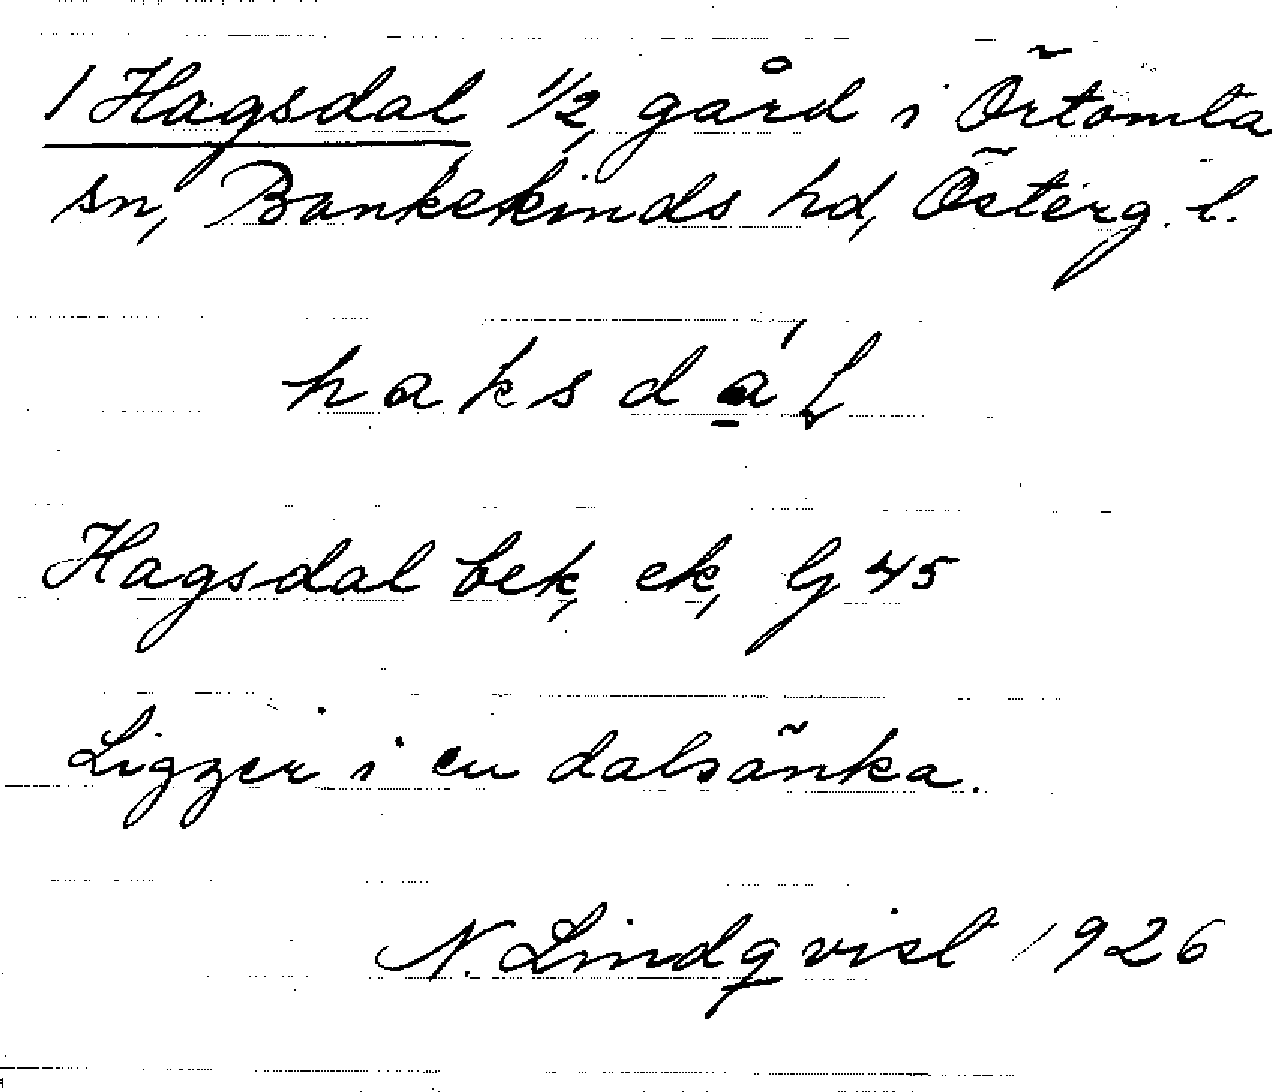 1 Hagsdal 1/2 gård i Örtomta
sn, Bankekinds hd, Österg. l.
haksdá̱L
Hagsdal bek, ek, G 45
Ligger i en dalsänka.
N. Lindqvist 1926